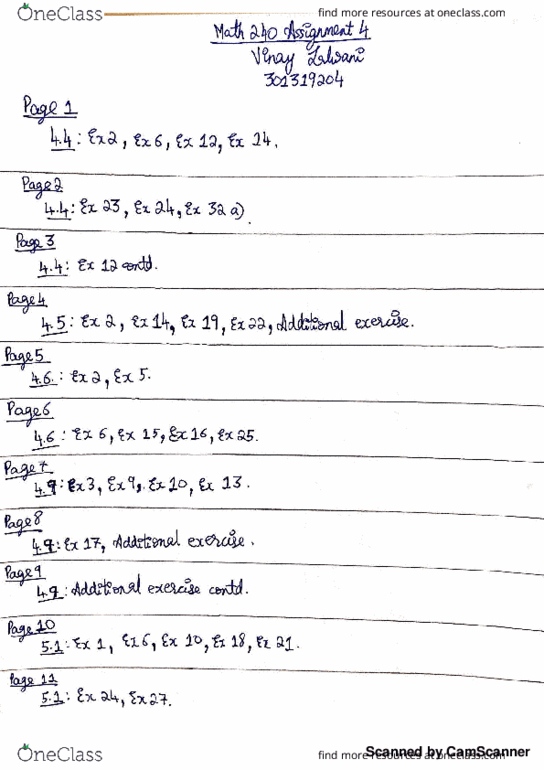 OneClass
find more resources at oneclass.com
Math 240 Assignment 4
Vinay Lalwani
301319204
Page 1
4.4: Ex2, Ex6, Ex 12, Ex 14.
Page 2
4.4: Ex 23, Ex 24, Ex 32 a).
Page 3
4.4: Ex 12 contd.
Page 4
4.5: Ex 2, Ex 14, Ex 19, Ex 22, Additional exercise.
Page 5
4.6.: Ex 2, Ex 5.
Page 6
4.6: Ex 6, Ex 15, Ex 16, Ex 25.
Page 7
4.9: Ex3, Ex9, Ex 10, Ex 13.
Page 8
4.9: Ex 17, Additional exercise.
Page 9
4.9: Additional exercise contd.
Page 10
5.1: Ex 1, Ex6, Ex 10, Ex 18, Ex 21.
Page 11
5.1: Ex 24, Ex 27.
OneClass
find more resources at oneclass.com
Scanned by CamScanner